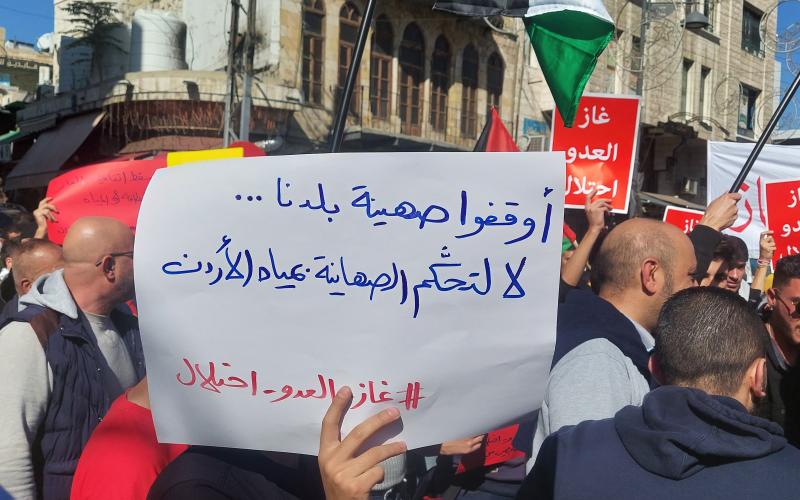 أوقفوا صهينة بلدنا ...
لا لتحكّم الصهاينة بمياه الأردن
#غاز_العدو_احتلال
غاز
العدو
احتلال
غاز